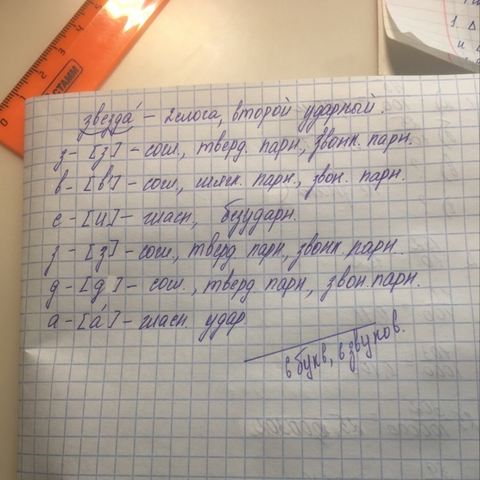 звезда́ – 2 слога, второй ударный.
з – [з] – согл., тверд. парн., звонк. парн.
в – [в'] – согл., мягк. парн., звон. парн.
е – [и] – гласн., безударн.
з – [з] – согл., тверд. парн., звонк. парн.
д – [д] – согл., тверд. парн., звон. парн.
а – [а́] – гласн. удар.
6 букв, 6 звуков.